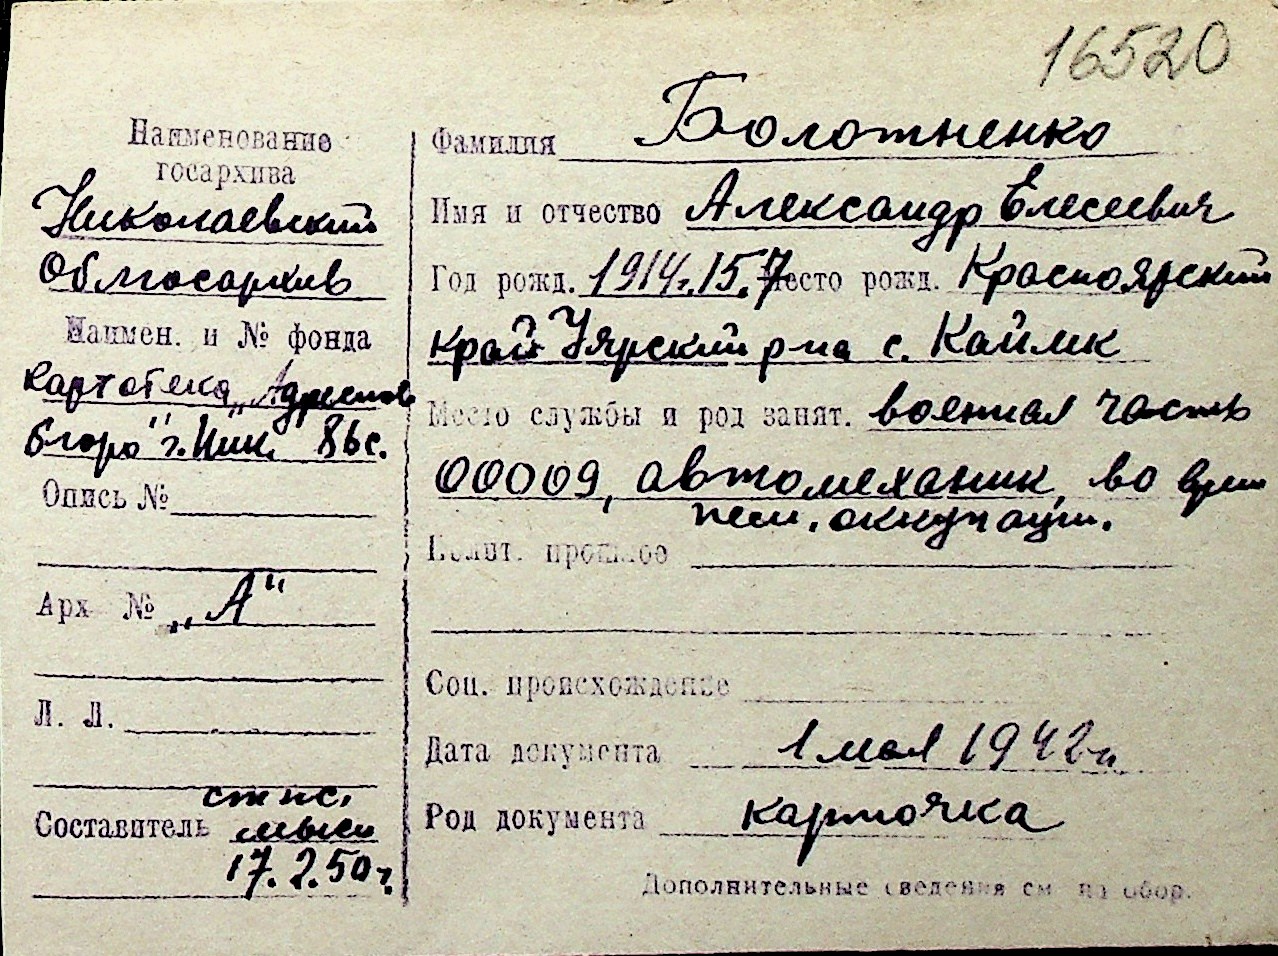 16520
Наименование
госархива
Николаевский
Облгосархив
Наимен. и № фонда
картотека „Адресное
бюро" г. Ник. 86с.
Опись №
Арх №  „А"
Л. Л.
Составитель
17.2.50г.
Фамилия Болотненко
Имя и отчество Александр Елесеевич
Год рожд. 1914г. 15.7 Место рожд. Красноярский
край Уярский р-на с. Каймк
Место службы и род занят. военная часть
00009, автомеханик, во врем
нем. оккупации.
Полит. прошлое
Соц. происхождение
Дата документа 1 мая 1942г.
Род документа карточка
Дополнительные сведения см на обор.